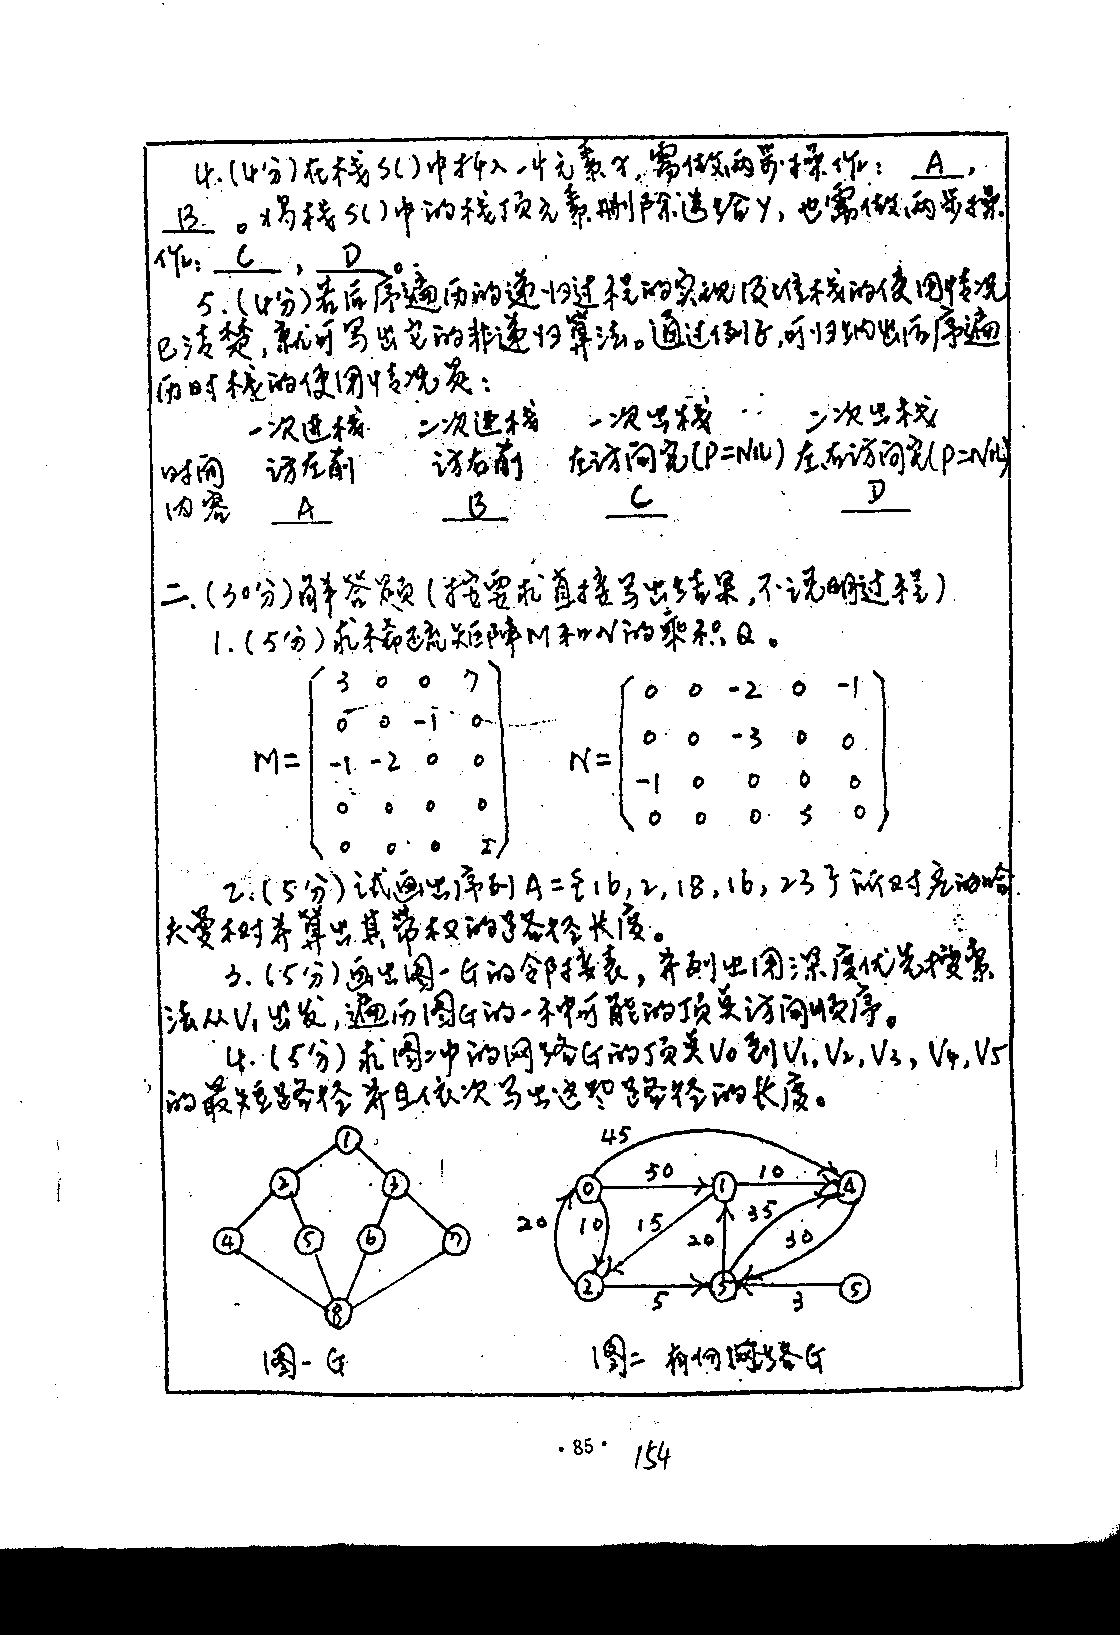 4.(4分)在栈S()中插入一个元素x,需做两步操作: A ,
B 。将栈S()中的栈顶元素删除送给y,也需做两步操
作: C , D 。
5.(4分)若后序遍历的递归过程的实现及堆栈的使用情况
已清楚,就可写出它的非递归算法。通过例子,可归纳出后序遍
历时栈的使用情况是:
一次进栈 二次进栈 一次出栈 二次出栈
时间 访左前 访右前 左访问完(P=NIL) 左右访问完(P=NIL)
内容 A B C D
二.(30分)解答题(按要求直接写出结果,不说明过程)
1.(5分)求稀疏矩阵M和N的乘积Q。
M=
3 0 0 7
0 0 -1 0
-1 -2 0 0
0 0 0 0
0 0 0 2
N=
0 0 -2 0 -1
0 0 -3 0 0
-1 0 0 0 0
0 0 0 5 0
2.(5分)试画出序列A={16,2,18,16,23}所对应的哈
夫曼树并算出其带权的路径长度。
3.(5分)画出图一G的邻接表,并列出用深度优先搜索
法从V1出发,遍历图G的一种可能的顶点访问顺序。
4.(5分)求图二中的网络G的顶点V0到V1,V2,V3,V4,V5
的最短路径并且依次写出这些路径的长度。
1
2 3
4 5 6 7
8
图一 G
45
0 50 1 10 4
20 10 15 20 35 30
2 5 3 3 5
图二 有向网络G
·85· 154